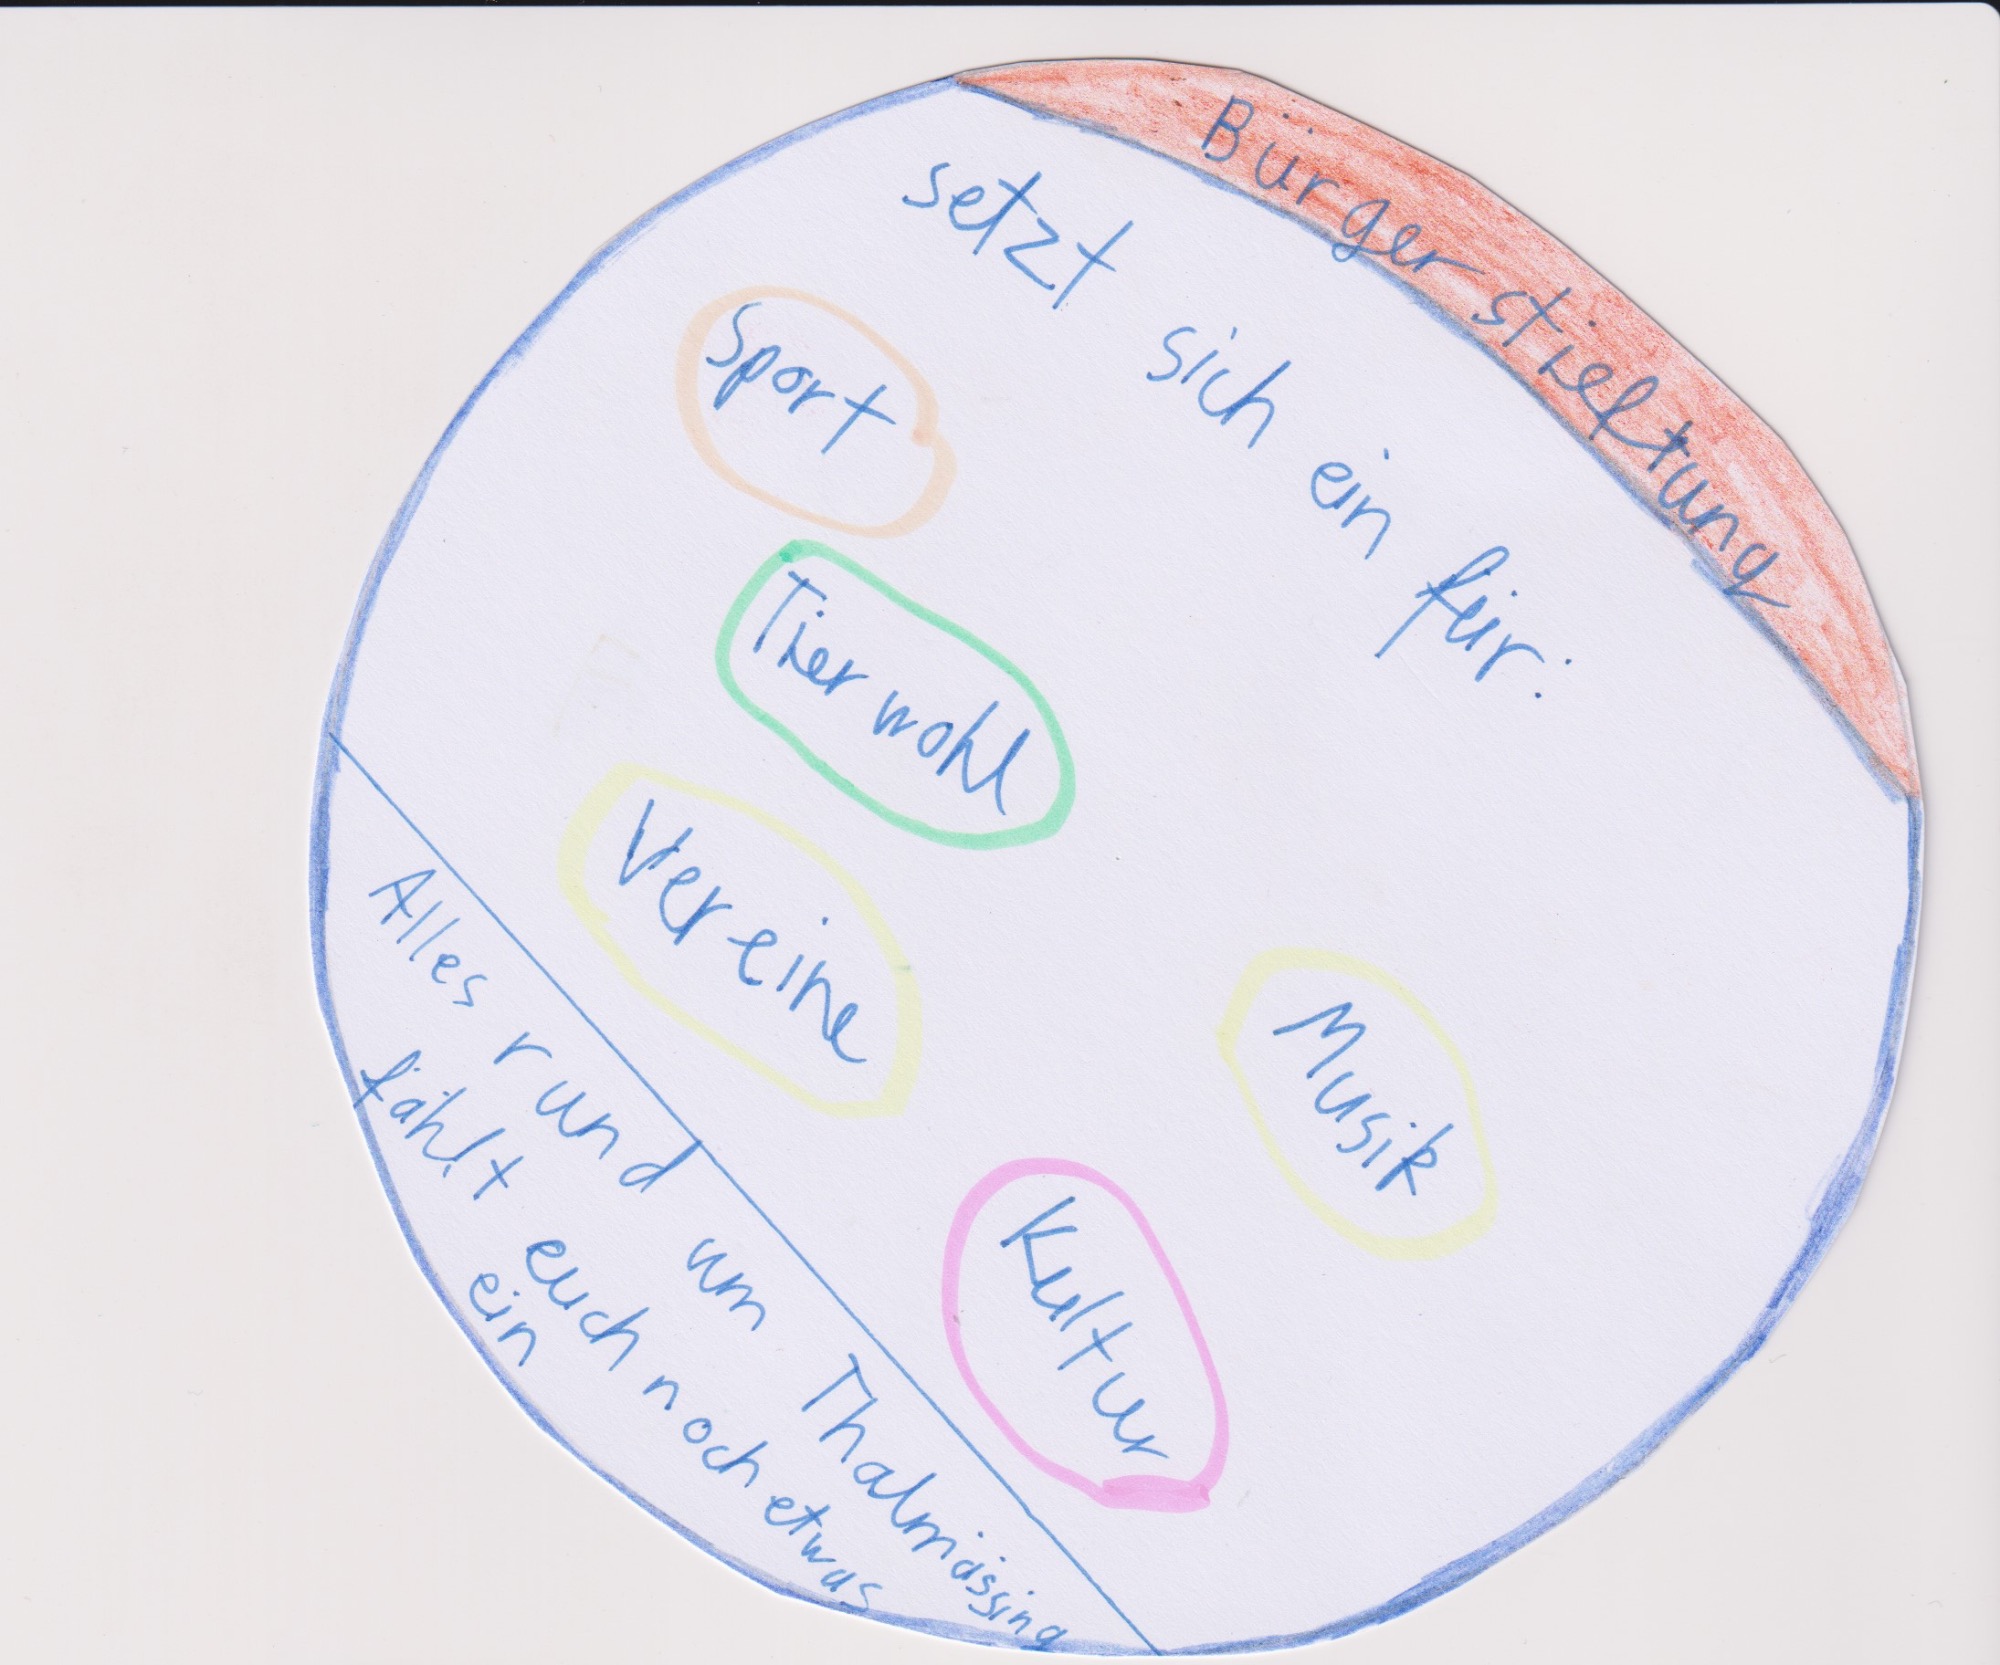 Bürgerstieftung
setzt sich ein für:
Sport
Tierwohl
Vereine
Musik
Kultur
Alles rund um Thalmässing
fählt euch noch etwas
ein